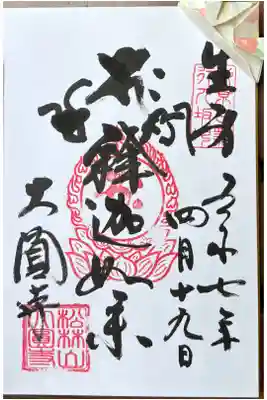 生身
令和七年
四月十九日
釋迦如来
大圓寺
松林山
大圓寺